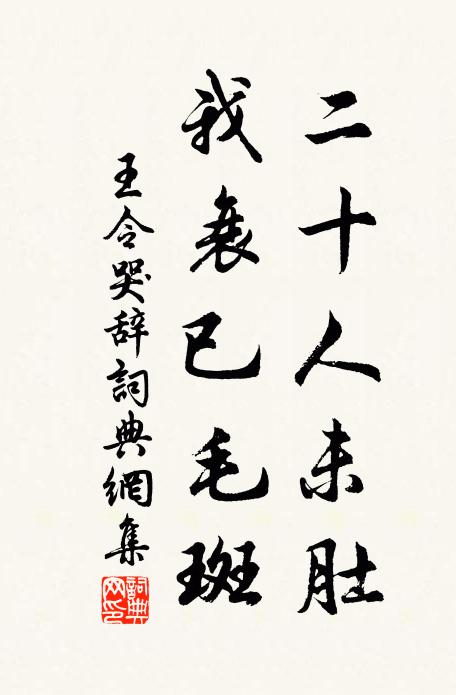 二十人未壯
我衰已毛斑
王令哭辞詞典網集
詞典網印